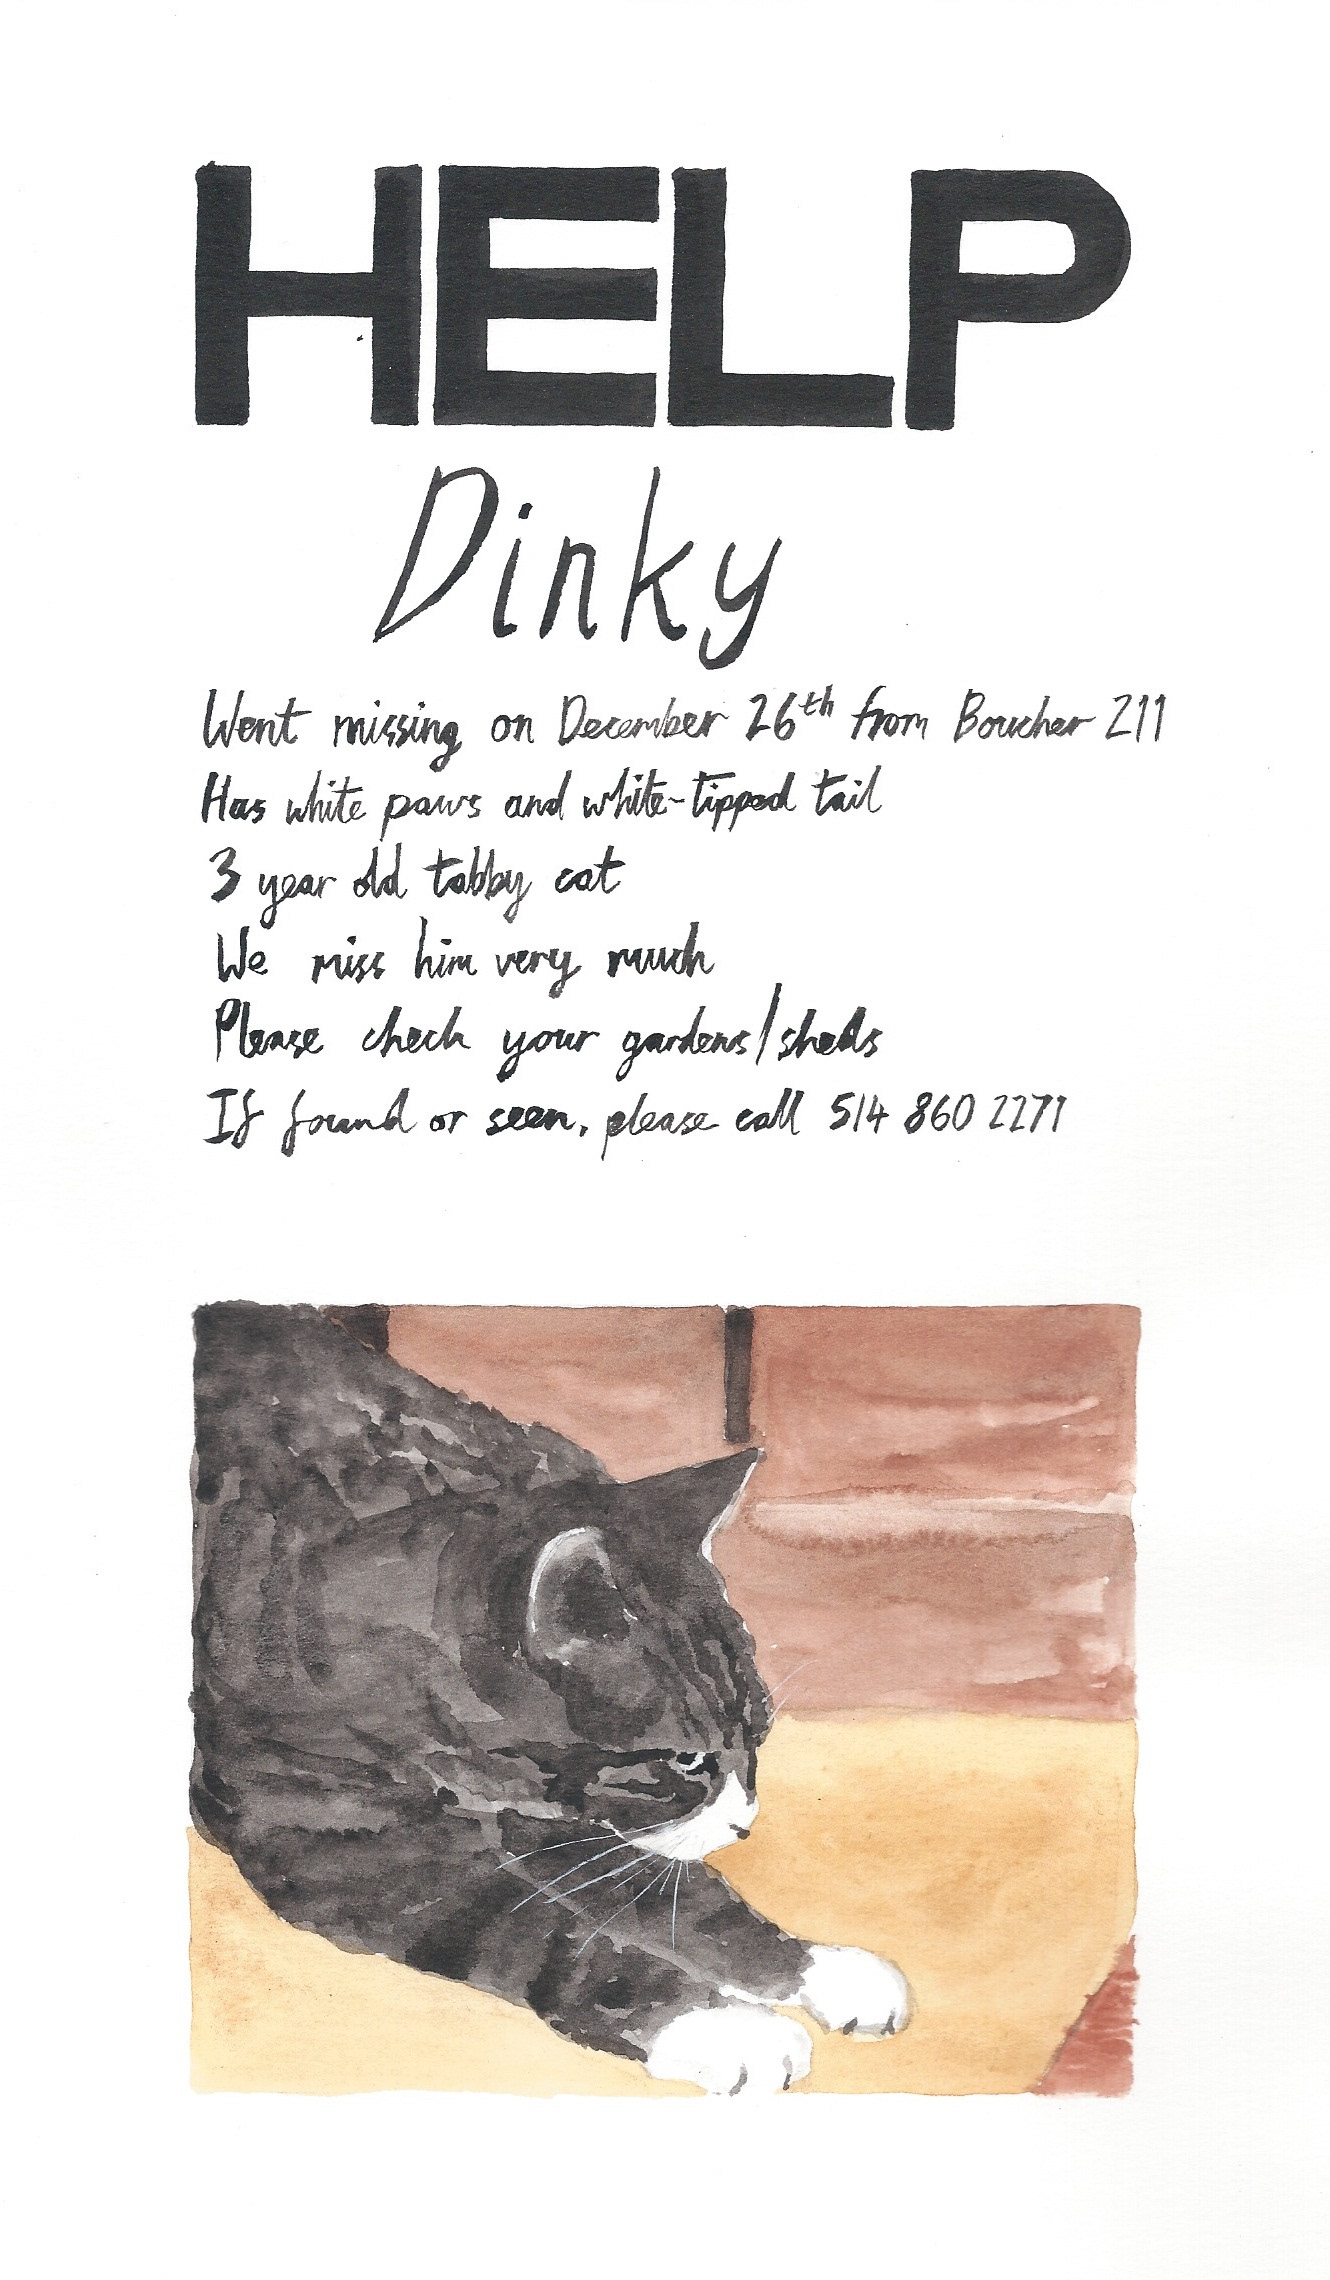 HELP
Dinky
Went missing on December 26th from Boucher 211
Has white paws and white-tipped tail
3 year old tabby cat
We miss him very much
Please check your gardens/sheds
If found or seen, please call 514 860 2271